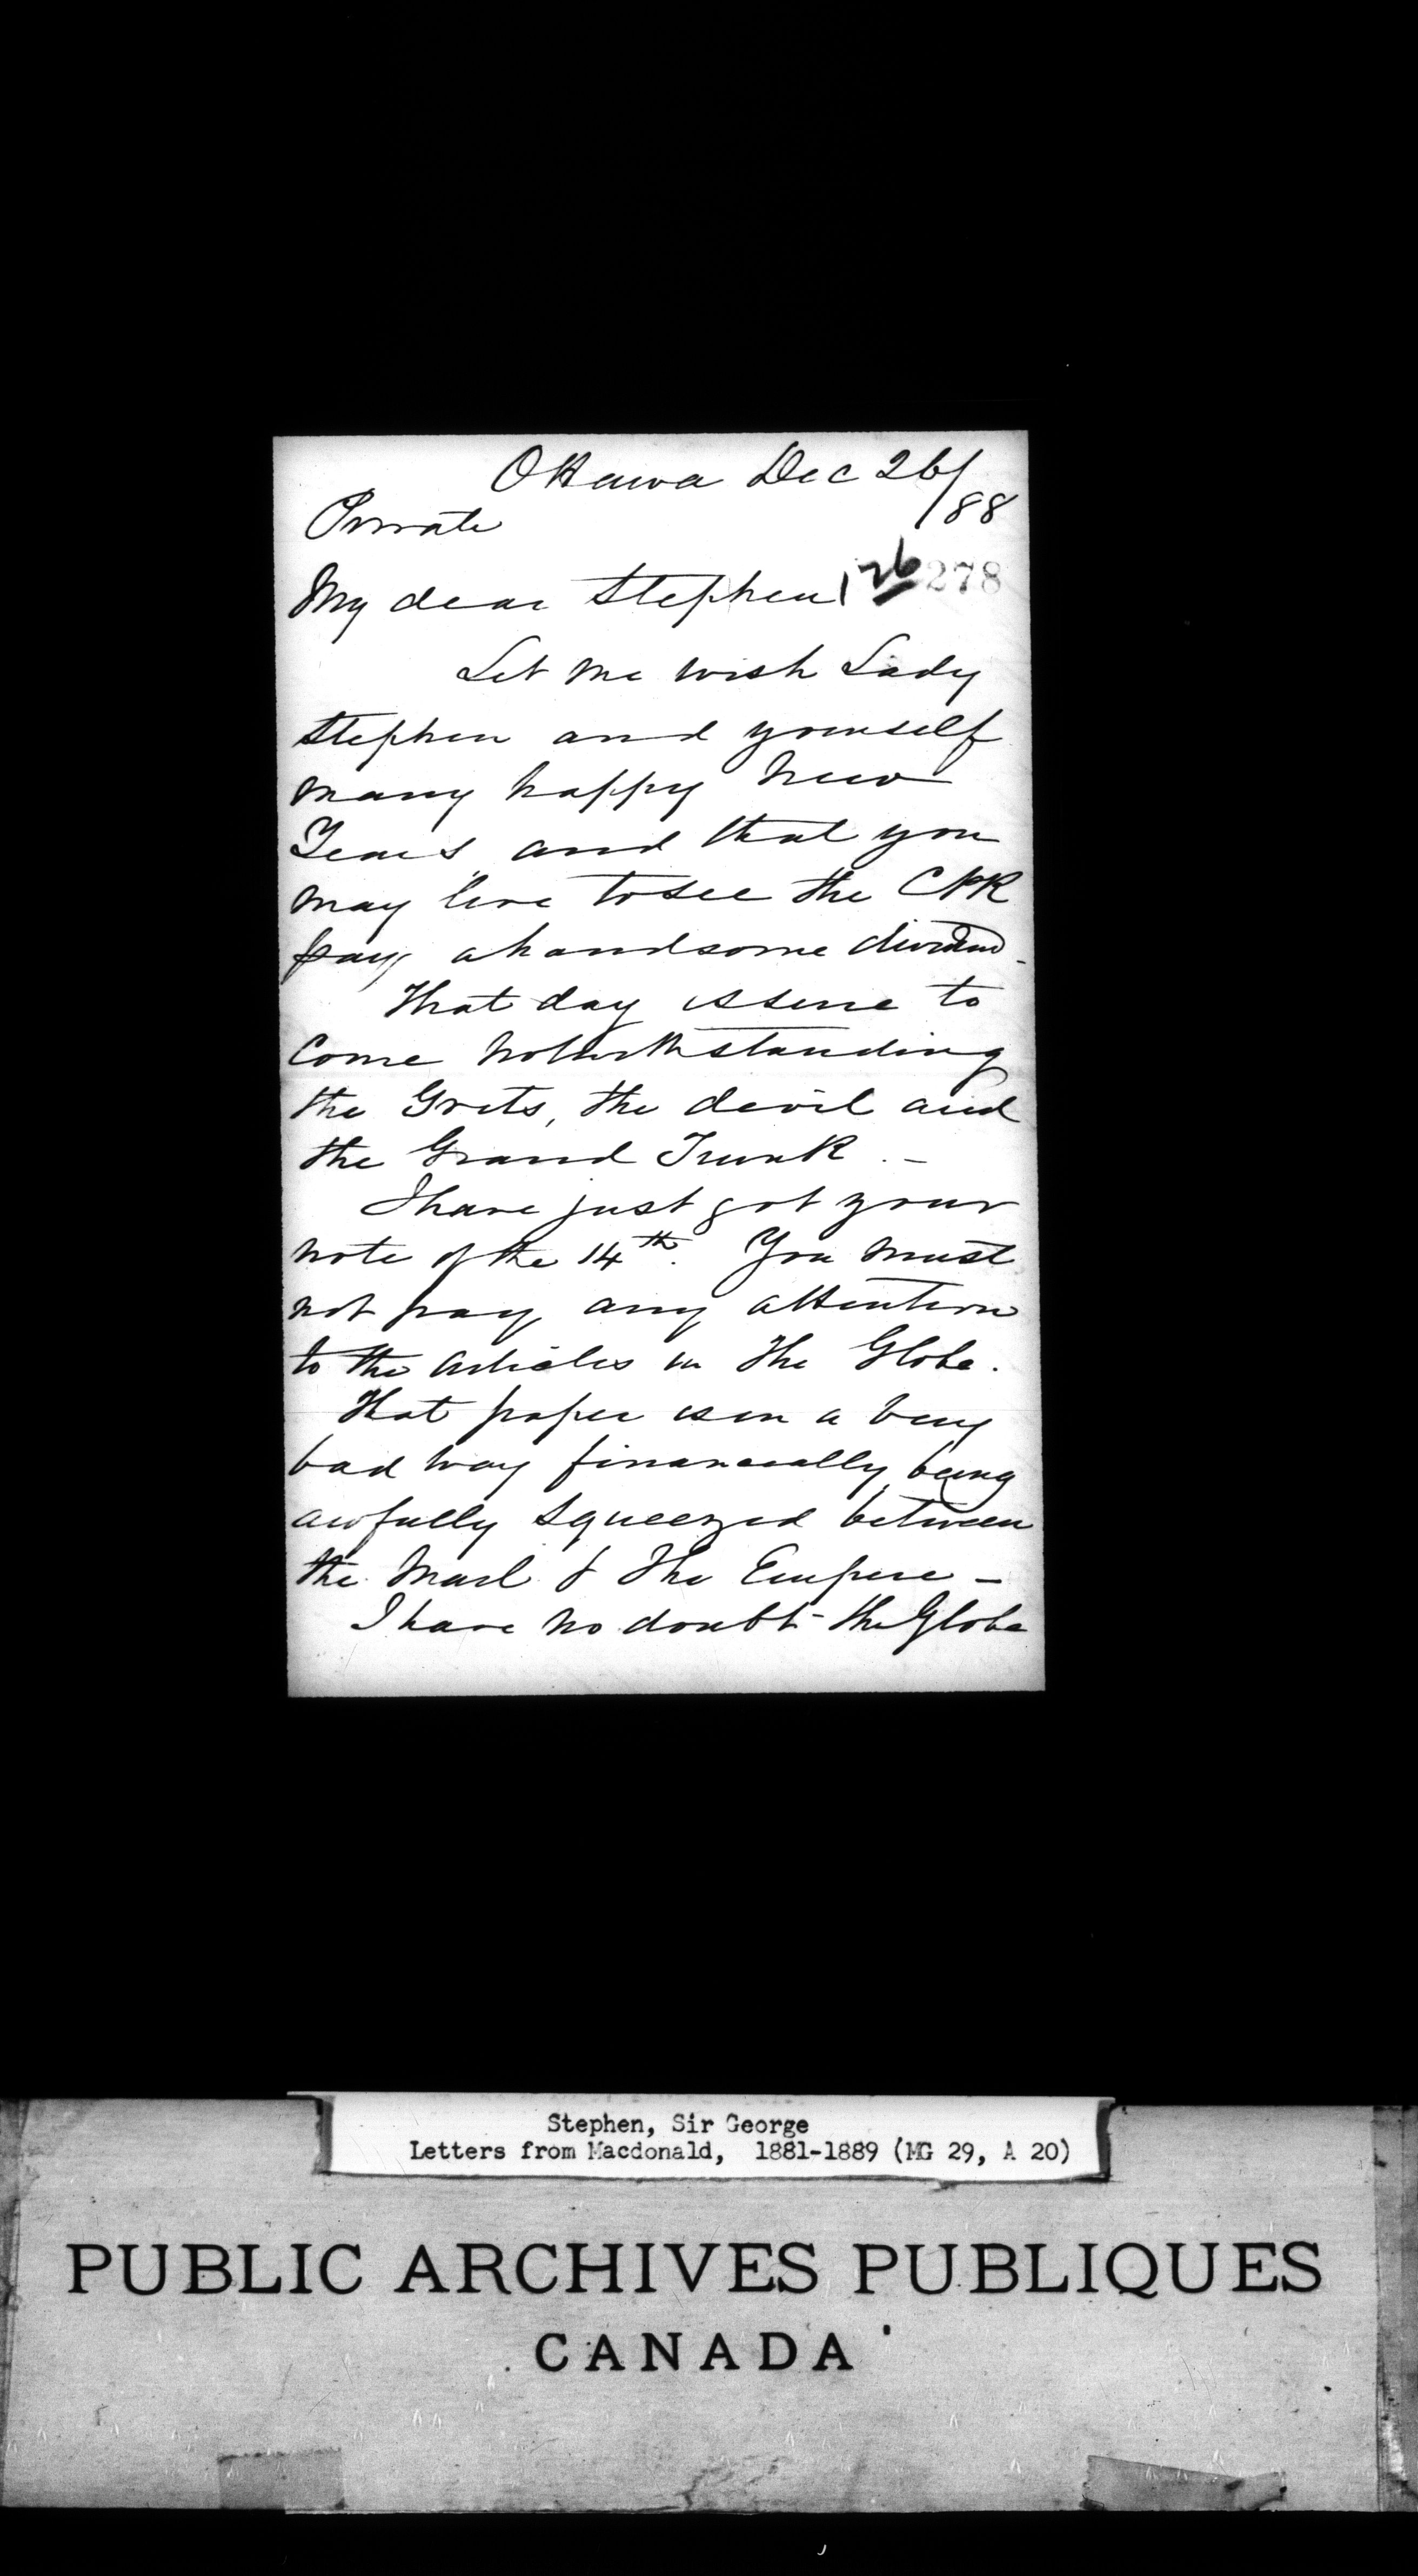 Ottawa Dec 26/88
Private
My dear Stephen
126 278
Let me wish Lady
Stephen and yourself
many happy New
Years and that you
may live to see the CPR
pay a handsome dividend -
That day is sure to
come notwithstanding
the Grits, the devil and
the Grand Trunk . -
I have just got your
note of the 14th. You must
not pay any attention
to the articles in The Globe.
That paper is in a very
bad way financially being
awfully squeezed between
the Mail & The Empire -
I have no doubt the Globe
Stephen, Sir George
Letters from Macdonald, 1881-1889 (MG 29, A 20)
PUBLIC ARCHIVES PUBLIQUES
CANADA